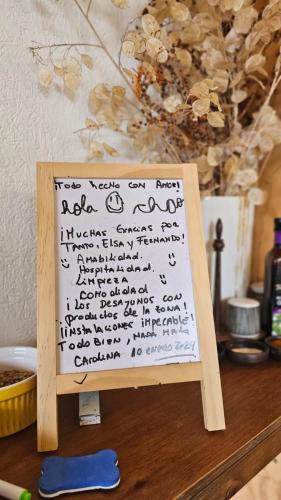 ¡Todo hecho con Amor!
hola
¡Muchas Gracias por
Tanto, Elsa y Fernando!
Amabilidad.
Hospitalidad.
Limpieza
Comodidad
¡Los Desayunos con
productos de la zona!
¡¡Instalaciones impecable!
Todo Bien, Nada Mal
Carolina 10 enero 2024